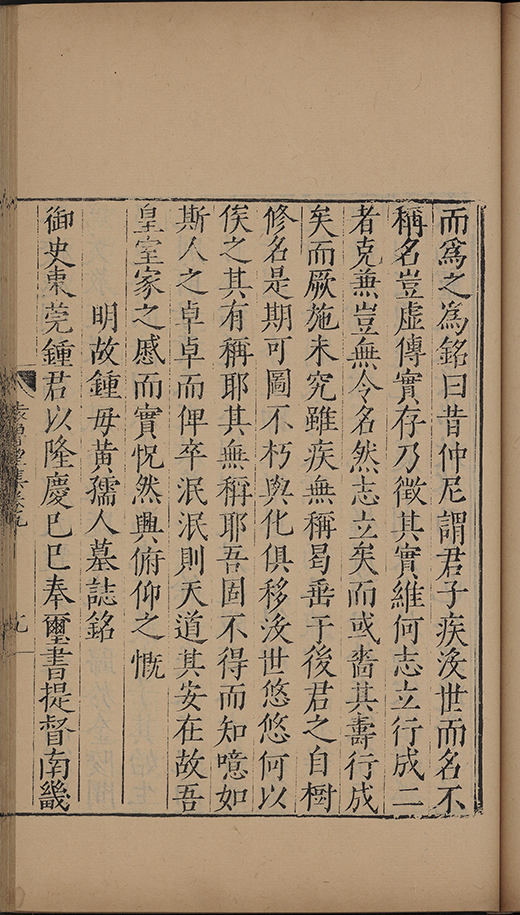 而爲之爲銘曰昔仲尼謂君子疾沒世而名不
稱名豈虛傳實存乃徵其實維何志立行成二
者克兼豈無令名然志立矣而或嗇其壽行成
矣而厥施未究雖疾無稱曷垂于後君之自樹
修名是期可圖不朽與化俱移沒世悠悠何以
俟之其有稱耶其無稱耶吾固不得而知噫如
斯人之卓卓而俾卒泯泯則天道其安在故吾
皇室家之慼而實怳然興俯仰之慨
明故鍾母黃孺人墓誌銘
御史東莞鍾君以隆慶己巳奉璽書提督南畿
九